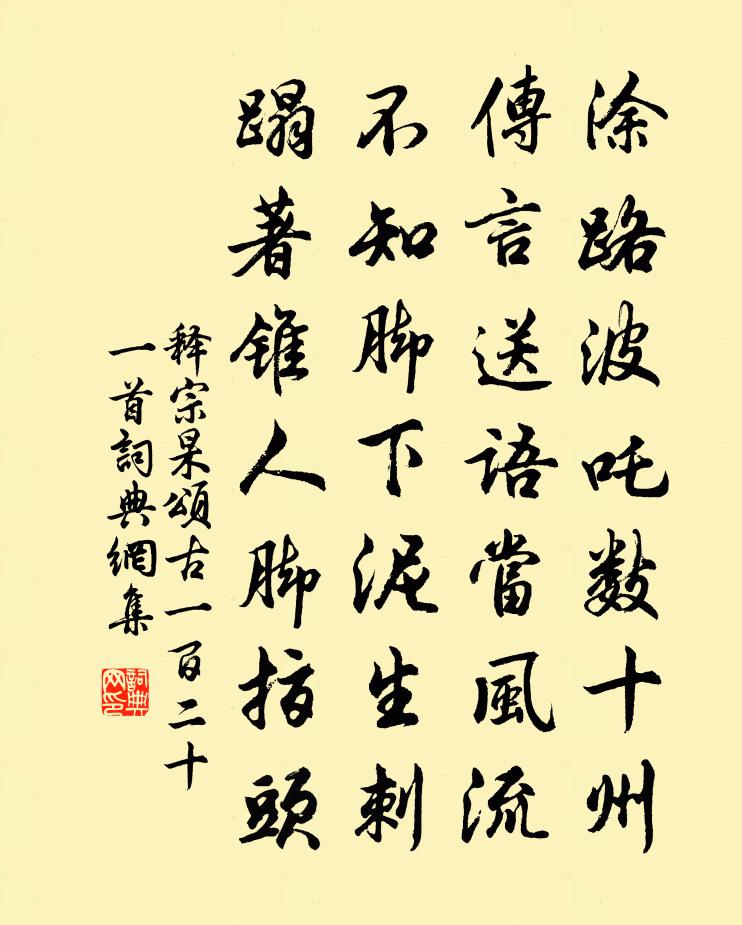 涂路波吒數十州
傳言送語當風流
不知脚下泥生刺
蹋著錐人脚指頭
释宗杲頌古一百二十
一首詞典網集
詞典网印